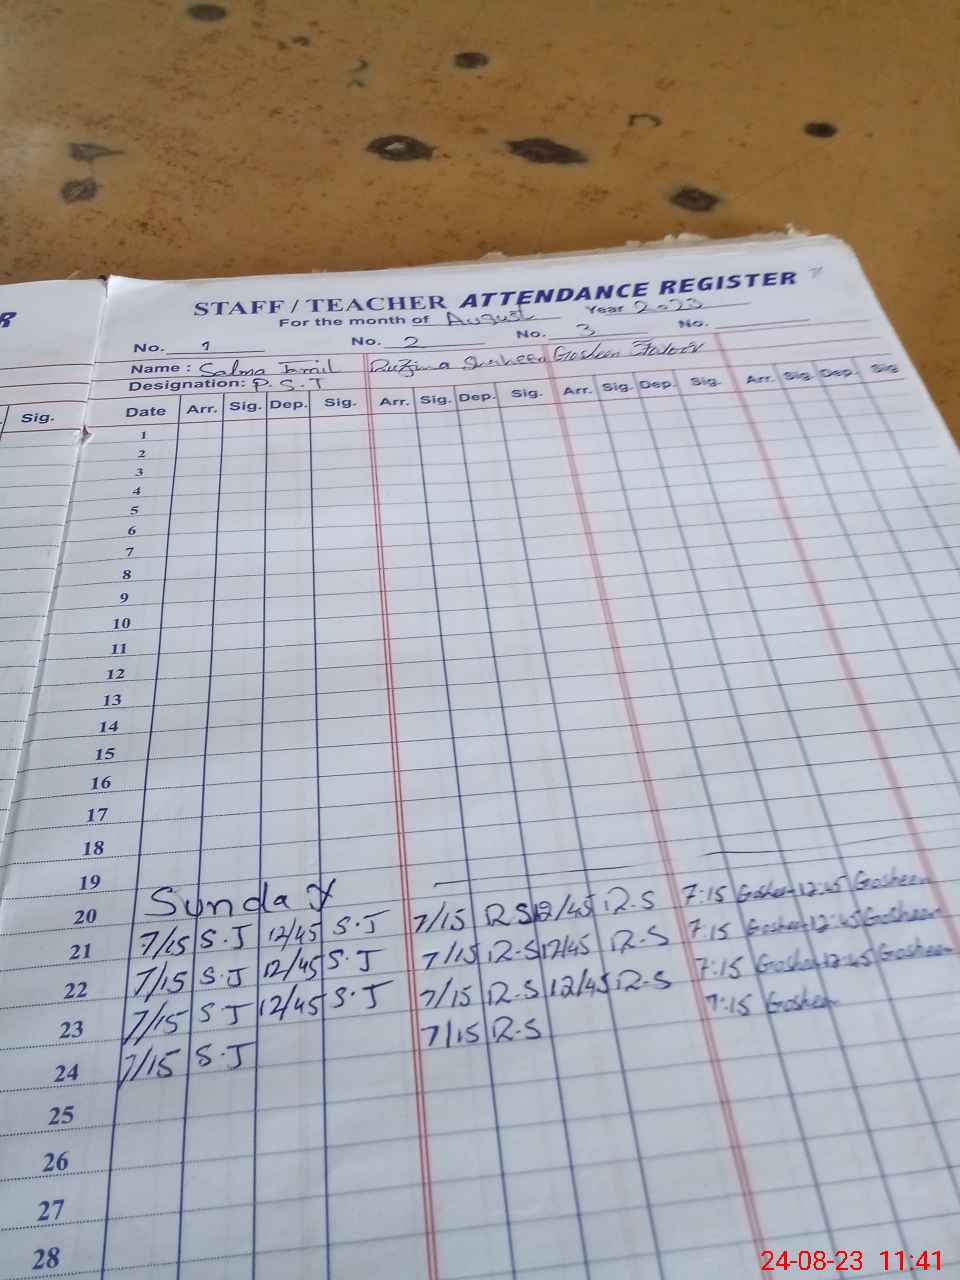 R
STAFF / TEACHER ATTENDANCE REGISTER
For the month of August Year 2023
No. 1 No. 2 No. 3 No.
Name : Salma Jamil Ruzina Shaheen Gosheen
Designation: P.S.T
Sig. Date Arr. Sig. Dep. Sig. Arr. Sig. Dep. Sig. Arr. Sig. Dep. Sig. Arr. Sig. Dep. Sig
1
2
3
4
5
6
7
8
9
10
11
12
13
14
15
16
17
18
19
20 Sunday
21 7/15 S.J 12/45 S.J 7/15 R.S 12/45 R.S 7:15 Gosheen 12:45 Gosheen
22 7/15 S.J 12/45 S.J 7/15 R.S 12/45 R.S 7:15 Gosheen 12:45 Gosheen
23 7/15 S J 12/45 S.J 7/15 R.S 12/45 R.S 7:15 Gosheen 12:45 Gosheen
24 7/15 S.J 7/15 R.S 7:15 Gosheen
25
26
27
28
24-08-23 11:41